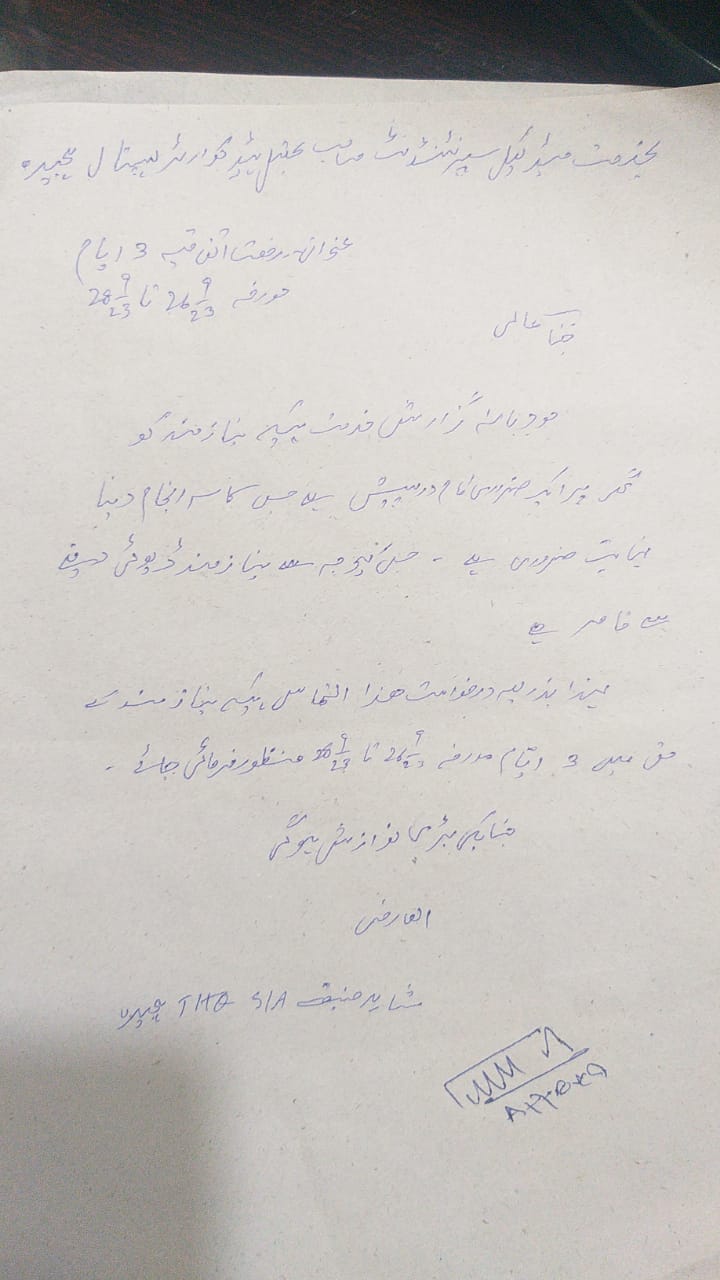 بخدمت میڈیکل سپرنٹنڈنٹ صاحب تحصیل ہیڈ کوارٹر ہسپتال
عنوان۔ رخصت اتفاقیہ 3 ایام
مورخہ 26/9/23 تا 28/9/23
جناب عالی
مودبانہ گزارش خدمت ہیکہ نیازمند کو
گھر پر ایک ضروری کام درپیش ہے جس کا سر انجام دینا
نہایت ضروری ہے ۔ جس کیوجہ سے نیازمند ڈیوٹی دینے
سے قاصر ہے
لہذا بذریعہ درخواست ھذا التماس ہیکہ نیازمند کے
حق میں 3 ایام مورخہ 26/9/23 تا 28/9/23 منظور فرمائی جائے ۔
جنابکی بڑی نوازش ہوگی
العارض
شاہد حنیف S/A THQ